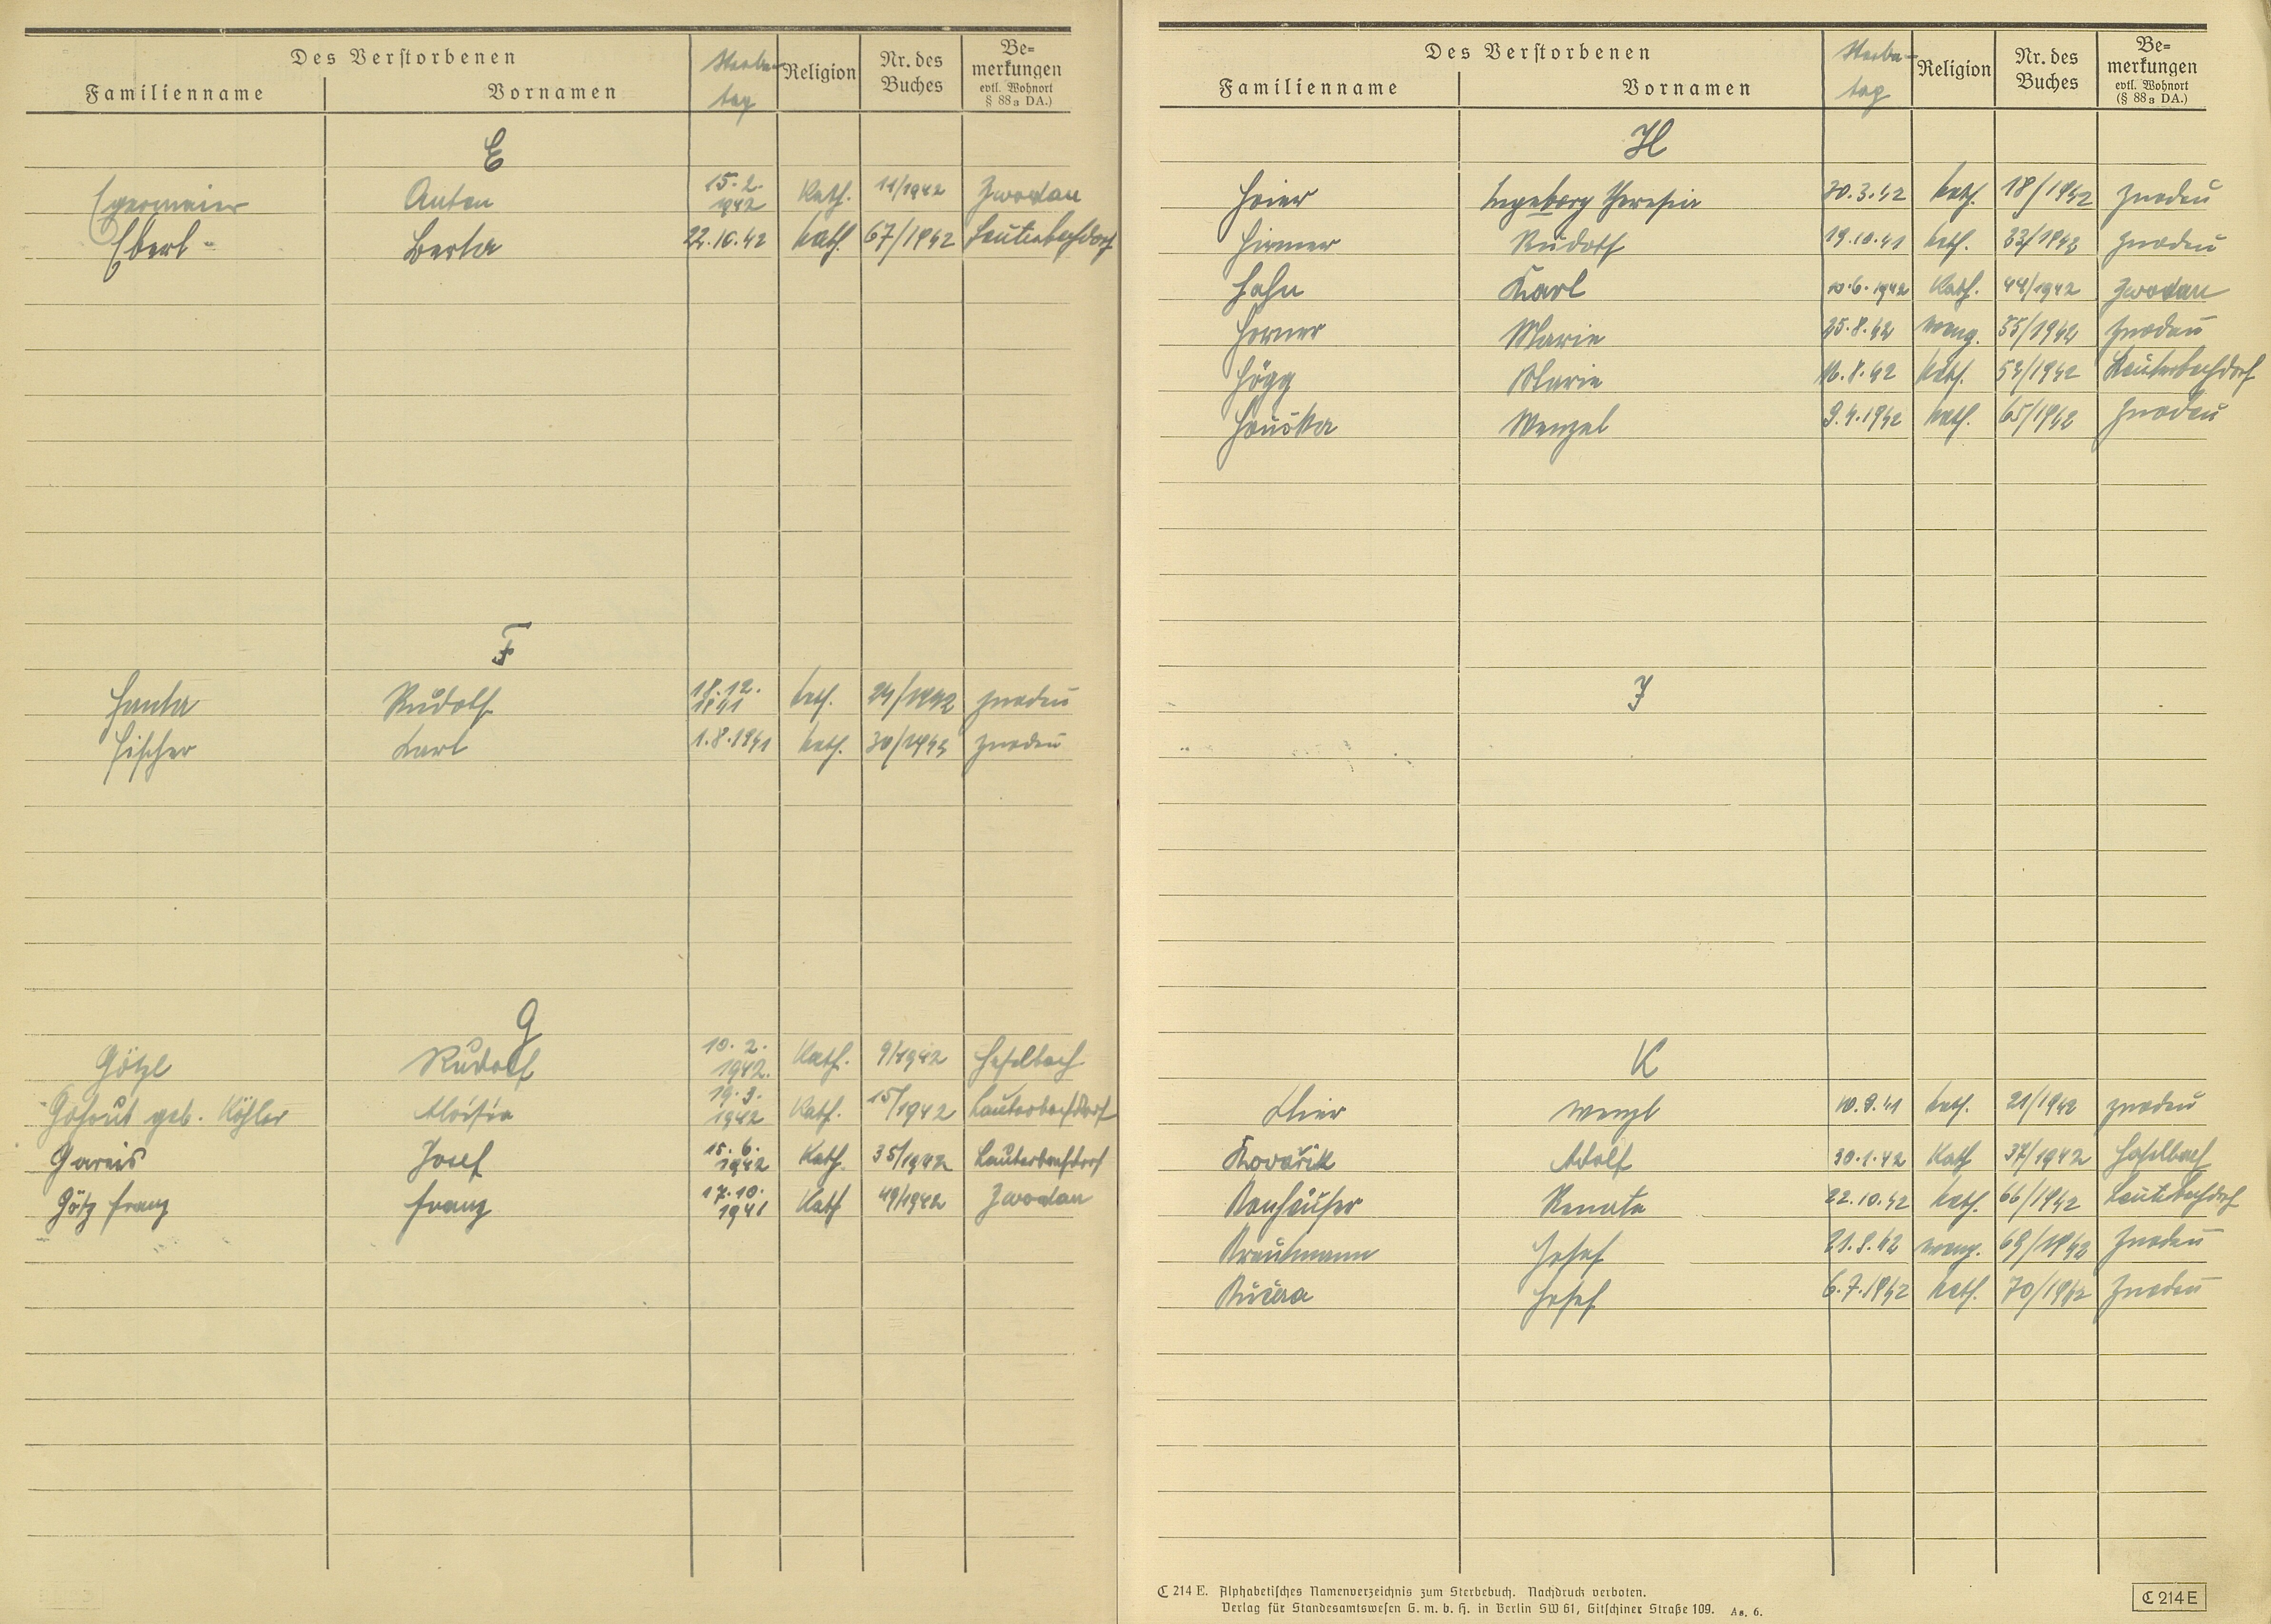 Des Verstorbenen
Familienname Vornamen Sterbe-tag Religion Nr. des Buches Be-merkungen evtl. Wohnort § 88a DA.)
E
Egermaier Anton 15.2. 1942 Kath. 11/1942 Zwodau
Eberl Berta 22.10.42 kath. 67/1942 Lauterbachdorf
F
Fanta Rudolf 18.12. 1941 kath. 24/1942 Zwodau
Fischer Karl 1.8.1941 kath. Zwodau
G
Götzl Rudolf 10.2. 1942. Kath. 9/1942 Haselbach
geb. Köhler Aloisia 19.3. 1942 Kath. 15/1942 Lauterbachdorf
Gareis Josef 15.6. 1942 Kath. 35/1942 Lauterbachdorf
Götz Franz Franz 17.10. 1941 Kath 49/1942 Zwodau
Des Verstorbenen
Familienname Vornamen Sterbe-tag Religion Nr. des Buches Be-merkungen evtl. Wohnort (§ 88a DA.)
H
Hoier Ingeborg Theresia 30.3.42 kath. 18/1942 Zwodau
Hirmer Rudolf 19.10.41 kath. 33/1942 Zwodau
Hahn Karl 10.6.1942 Kath. 44/1942 Zwodau
Horner Marie 25.8.42 evang. 55/1942 Zwodau
Högg Maria 16.8.42 kath. 59/1942 Lauterbachdorf
Houška Wenzel 9.4.1942 kath. 65/1942 Zwodau
J
K
Klier Wenzl 10.9.41 kath. 21/1942 Zwodau
Kovařik Adolf 30.1.42 Kath 37/1942 Haselbach
Renate 22.10.42 kath. 66/1942 Lauterbachdorf
Krautmann Josef 21.8.42 evang. 69/1942 Zwodau
Kučera Josef 6.7.1942 kath. 70/1942 Zwodau
C 214 E. Alphabetisches Namenverzeichnis zum Sterbebuch. Nachdruck verboten.
Verlag für Standesamtswesen G. m. b. H. in Berlin SW 61, Gitschiner Straße 109. As. 6.
C 214 E